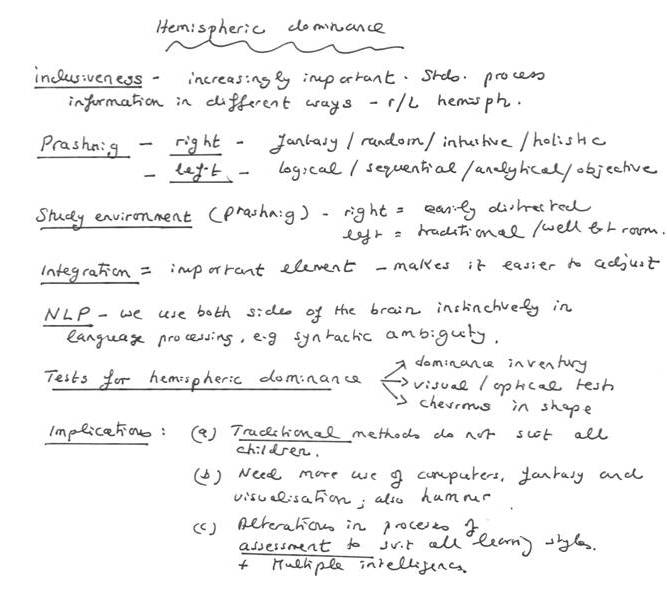 Hemispheric dominance
inclusiveness - increasingly important. Stds. process
information in different ways - r/L hemisph.
Prashnig - right - fantasy / random / intuitive / holistic
- left - logical / sequential / analytical / objective
Study environment (Prashnig) - right = easily distracted
left = traditional / well lit room.
Integration = important element - makes it easier to adjust
NLP - we use both sides of the brain instinctively in
language processing, e.g syntactic ambiguity.
dominance inventory
Tests for hemispheric dominance → visual / optical tests
chevrons in shape
Implications: (a) Traditional methods do not suit all
children.
(b) Need more use of computers, fantasy and
visualisation; also humour.
(c) Alterations in process of
assessment to suit all learning styles.
+ Multiple intelligences